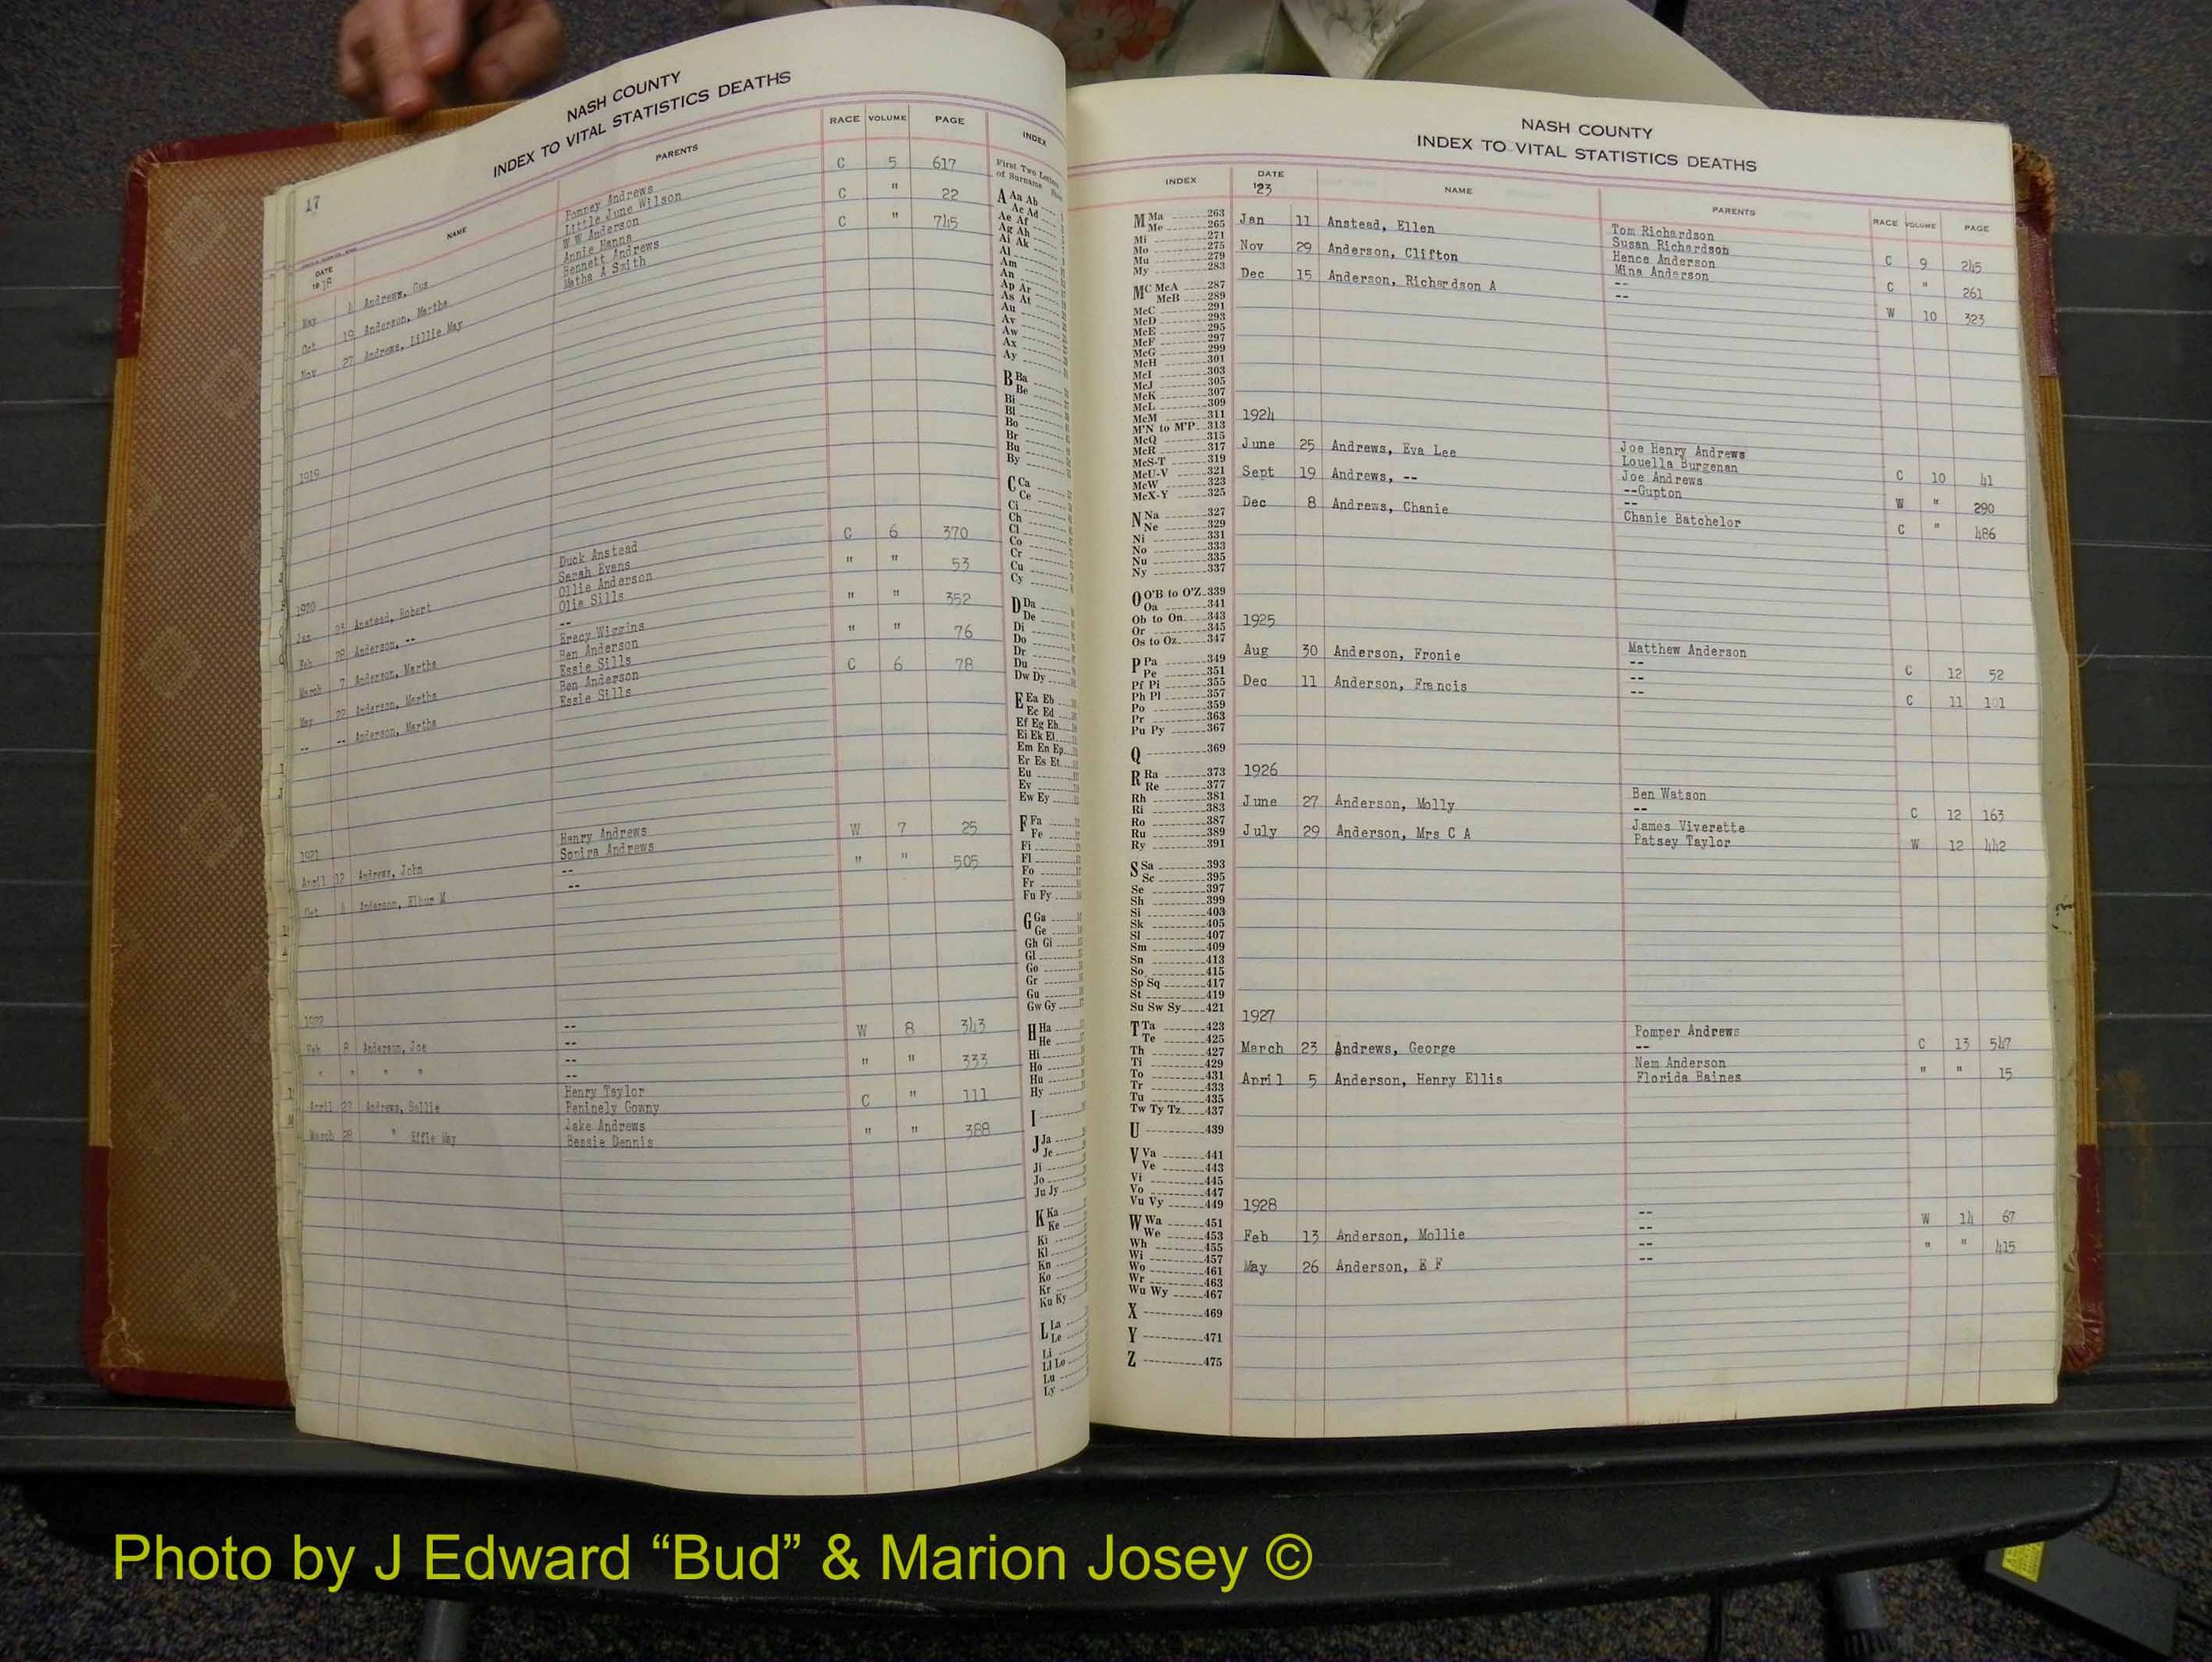 17
NASH COUNTY
INDEX TO VITAL STATISTICS DEATHS
DATE NAME PARENTS RACE VOLUME PAGE
1918
May 4 Andrews, Gus Pompey Andrews C 5 617
Little June Wilson
Oct 19 Anderson, Martha W W Anderson C " 22
Annie Hanna
Nov 27 Andrews, Lillie May Bennett Andrews C " 745
Matha A Smith
1919
1920
Jan 23 Anstead, Robert Duck Anstead C 6 370
Sarah Evans
Feb 28 Anderson, -- Ollie Anderson " " 53
Olia Sills
March 7 Anderson, Martha -- " " 352
Erecy Wiggins
May 22 Anderson, Martha Ben Anderson " " 76
Essie Sills
-- -- Anderson, Martha Ben Anderson C 6 78
Essie Sills
1921
April 12 Andrews, John Henry Andrews W 7 25
Sonira Andrews
Oct 4 Anderson, Elbur M -- " " 505
--
1922
Feb 8 Anderson, Joe -- W 8 343
--
" " " " -- " " 333
--
April 27 Andrews, Sallie Henry Taylor C " 111
Peninely Gowny
March 28 " Effie May Jake Andrews " " 388
Bessie Dennis
INDEX
First Two Letters
of Surname
A Aa Ab
Ac Ad
Ae Af
Ag Ah
Ai Ak
Al
Am
An
Ap Ar
As At
Au
Av
Aw
Ax
Ay
B Ba
Be
Bi
Bl
Bo
Br
Bu
By
C Ca
Ce
Ci
Ch
Cl
Co
Cr
Cu
Cy
D Da
De
Di
Do
Dr
Du
Dw Dy
E Ea Eb
Ec Ed
Ef Eg Eh
Ei Ek El
Em En Ep
Er Es Et
Eu
Ev
Ew Ey
F Fa
Fe
Fi
Fl
Fo
Fr
Fu Fy
G Ga
Ge
Gh Gi
Gl
Go
Gr
Gu
Gw Gy
H Ha
He
Hi
Ho
Hu
Hy
I
J Ja
Je
Ji
Jo
Ju Jy
K Ka
Ke
Ki
Kl
Kn
Ko
Kr
Ku Ky
L La
Le
Li
Ll Lo
Lu
Ly
NASH COUNTY
INDEX TO VITAL STATISTICS DEATHS
INDEX DATE NAME PARENTS RACE VOLUME PAGE
M Ma 263
Me 265
Mi 271
Mo 275
Mu 279
My 283
Mc McA 287
McB 289
McC 291
McD 293
McE 295
McF 297
McG 299
McH 301
McI 303
McJ 305
McK 307
McL 309
McM 311
M'N to M'P 313
McQ 315
McR 317
McS-T 319
McU-V 321
McW 323
McX-Y 325
N Na 327
Ne 329
Ni 331
No 333
Nu 335
Ny 337
O O'B to O'Z 339
Oa 341
Ob to On 343
Or 345
Os to Oz 347
P Pa 349
Pe 351
Pf Pi 355
Ph Pl 357
Po 359
Pr 363
Pu Py 367
Q 369
R Ra 373
Re 377
Rh 381
Ri 383
Ro 387
Ru 389
Ry 391
S Sa 393
Sc 395
Se 397
Sh 399
Si 403
Sk 405
Sl 407
Sm 409
Sn 413
So 415
Sp Sq 417
St 419
Su Sw Sy 421
T Ta 423
Te 425
Th 427
Ti 429
To 431
Tr 433
Tu 435
Tw Ty Tz 437
U 439
V Va 441
Ve 443
Vi 445
Vo 447
Vu Vy 449
W Wa 451
We 453
Wh 455
Wi 457
Wo 461
Wr 463
Wu Wy 467
X 469
Y 471
Z 475
'23
Jan 11 Anstead, Ellen Tom Richardson C 9 245
Susan Richardson
Nov 29 Anderson, Clifton Hence Anderson C " 261
Mina Anderson
Dec 15 Anderson, Richardson A -- W 10 323
--
1924
June 25 Andrews, Eva Lee Joe Henry Andrews C 10 41
Louella Burgenan
Sept 19 Andrews, -- Joe Andrews W " 290
--Gupton
Dec 8 Andrews, Chanie -- C " 486
Chanie Batchelor
1925
Aug 30 Anderson, Fronie Matthew Anderson C 12 52
--
Dec 11 Anderson, Francis -- C 11 101
--
1926
June 27 Anderson, Molly Ben Watson C 12 163
--
July 29 Anderson, Mrs C A James Viverette W 12 442
Patsey Taylor
1927
March 23 Andrews, George Pomper Andrews C 13 547
--
April 5 Anderson, Henry Ellis Nem Anderson " " 15
Florida Baines
1928
Feb 13 Anderson, Mollie -- W 14 67
--
May 26 Anderson, E F -- " " 415
--
Photo by J Edward “Bud” & Marion Josey ©